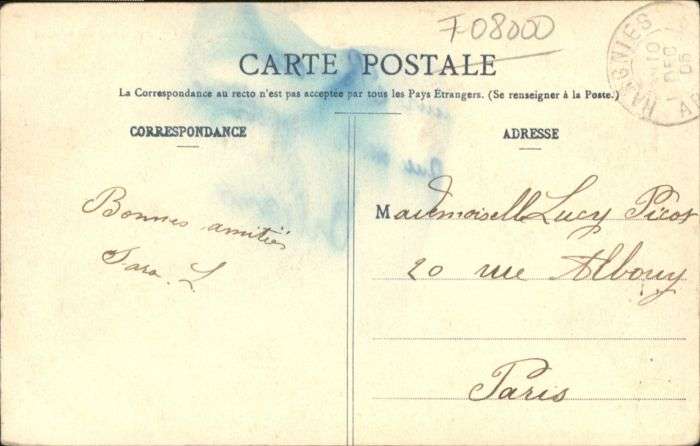 F08000
HARGNIES
10
DEC
05
CARTE POSTALE
La Correspondance au recto n'est pas acceptée par tous les Pays Étrangers. (Se renseigner à la Poste.)
CORRESPONDANCE
ADRESSE
Bonnes amitiés
Sara. L
Mademoiselle Lucy Picot
20 rue Albouy
Paris